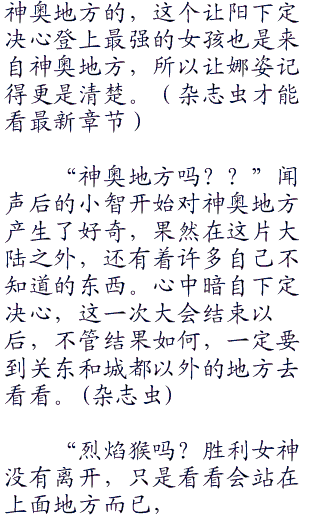 神奥地方的，这个让阳下定
决心登上最强的女孩也是来
自神奥地方，所以让娜姿记
得更是清楚。（杂志虫才能
看最新章节）
“神奥地方吗？？”闻
声后的小智开始对神奥地方
产生了好奇，果然在这片大
陆之外，还有着许多自己不
知道的东西。心中暗自下定
决心，这一次大会结束以
后，不管结果如何，一定要
到关东和城都以外的地方去
看看。(杂志虫)
“烈焰猴吗？胜利女神
没有离开，只是看看会站在
上面地方而已，